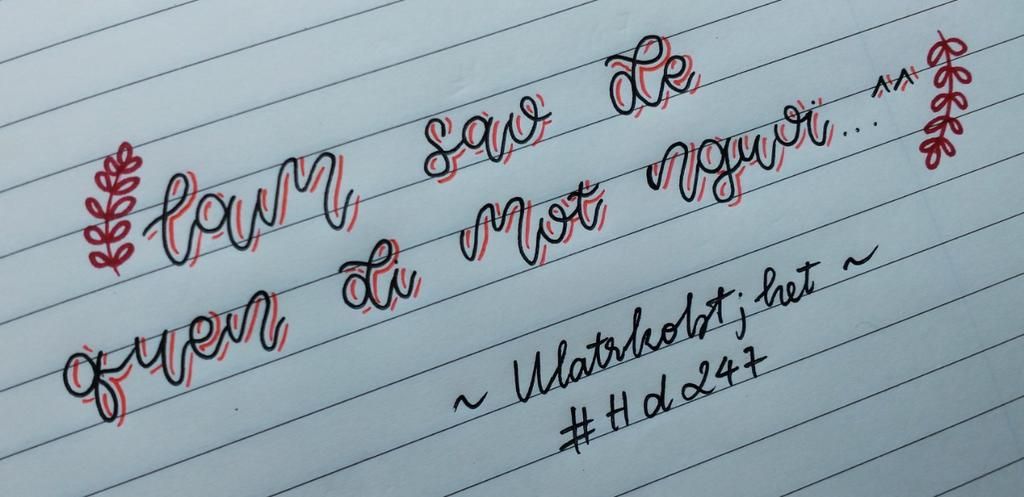 lam sao de
quen di mot nguoi... ^^
~ Ulatrkobt; het ~
# Hd247